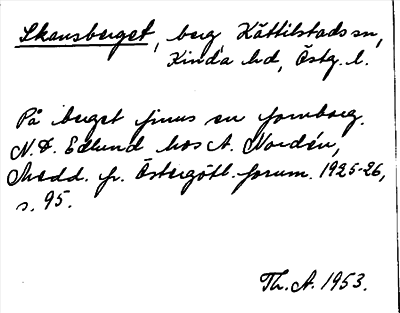 Skansberget, berg Kättilstads sn,
Kinda hd, Östg. l.
På berget finns en fornborg.
N. D. Edlund hos A. Nordén,
Medd. fr. Östergötl. fornm. 1925-26,
s. 95.
Th. A. 1953.